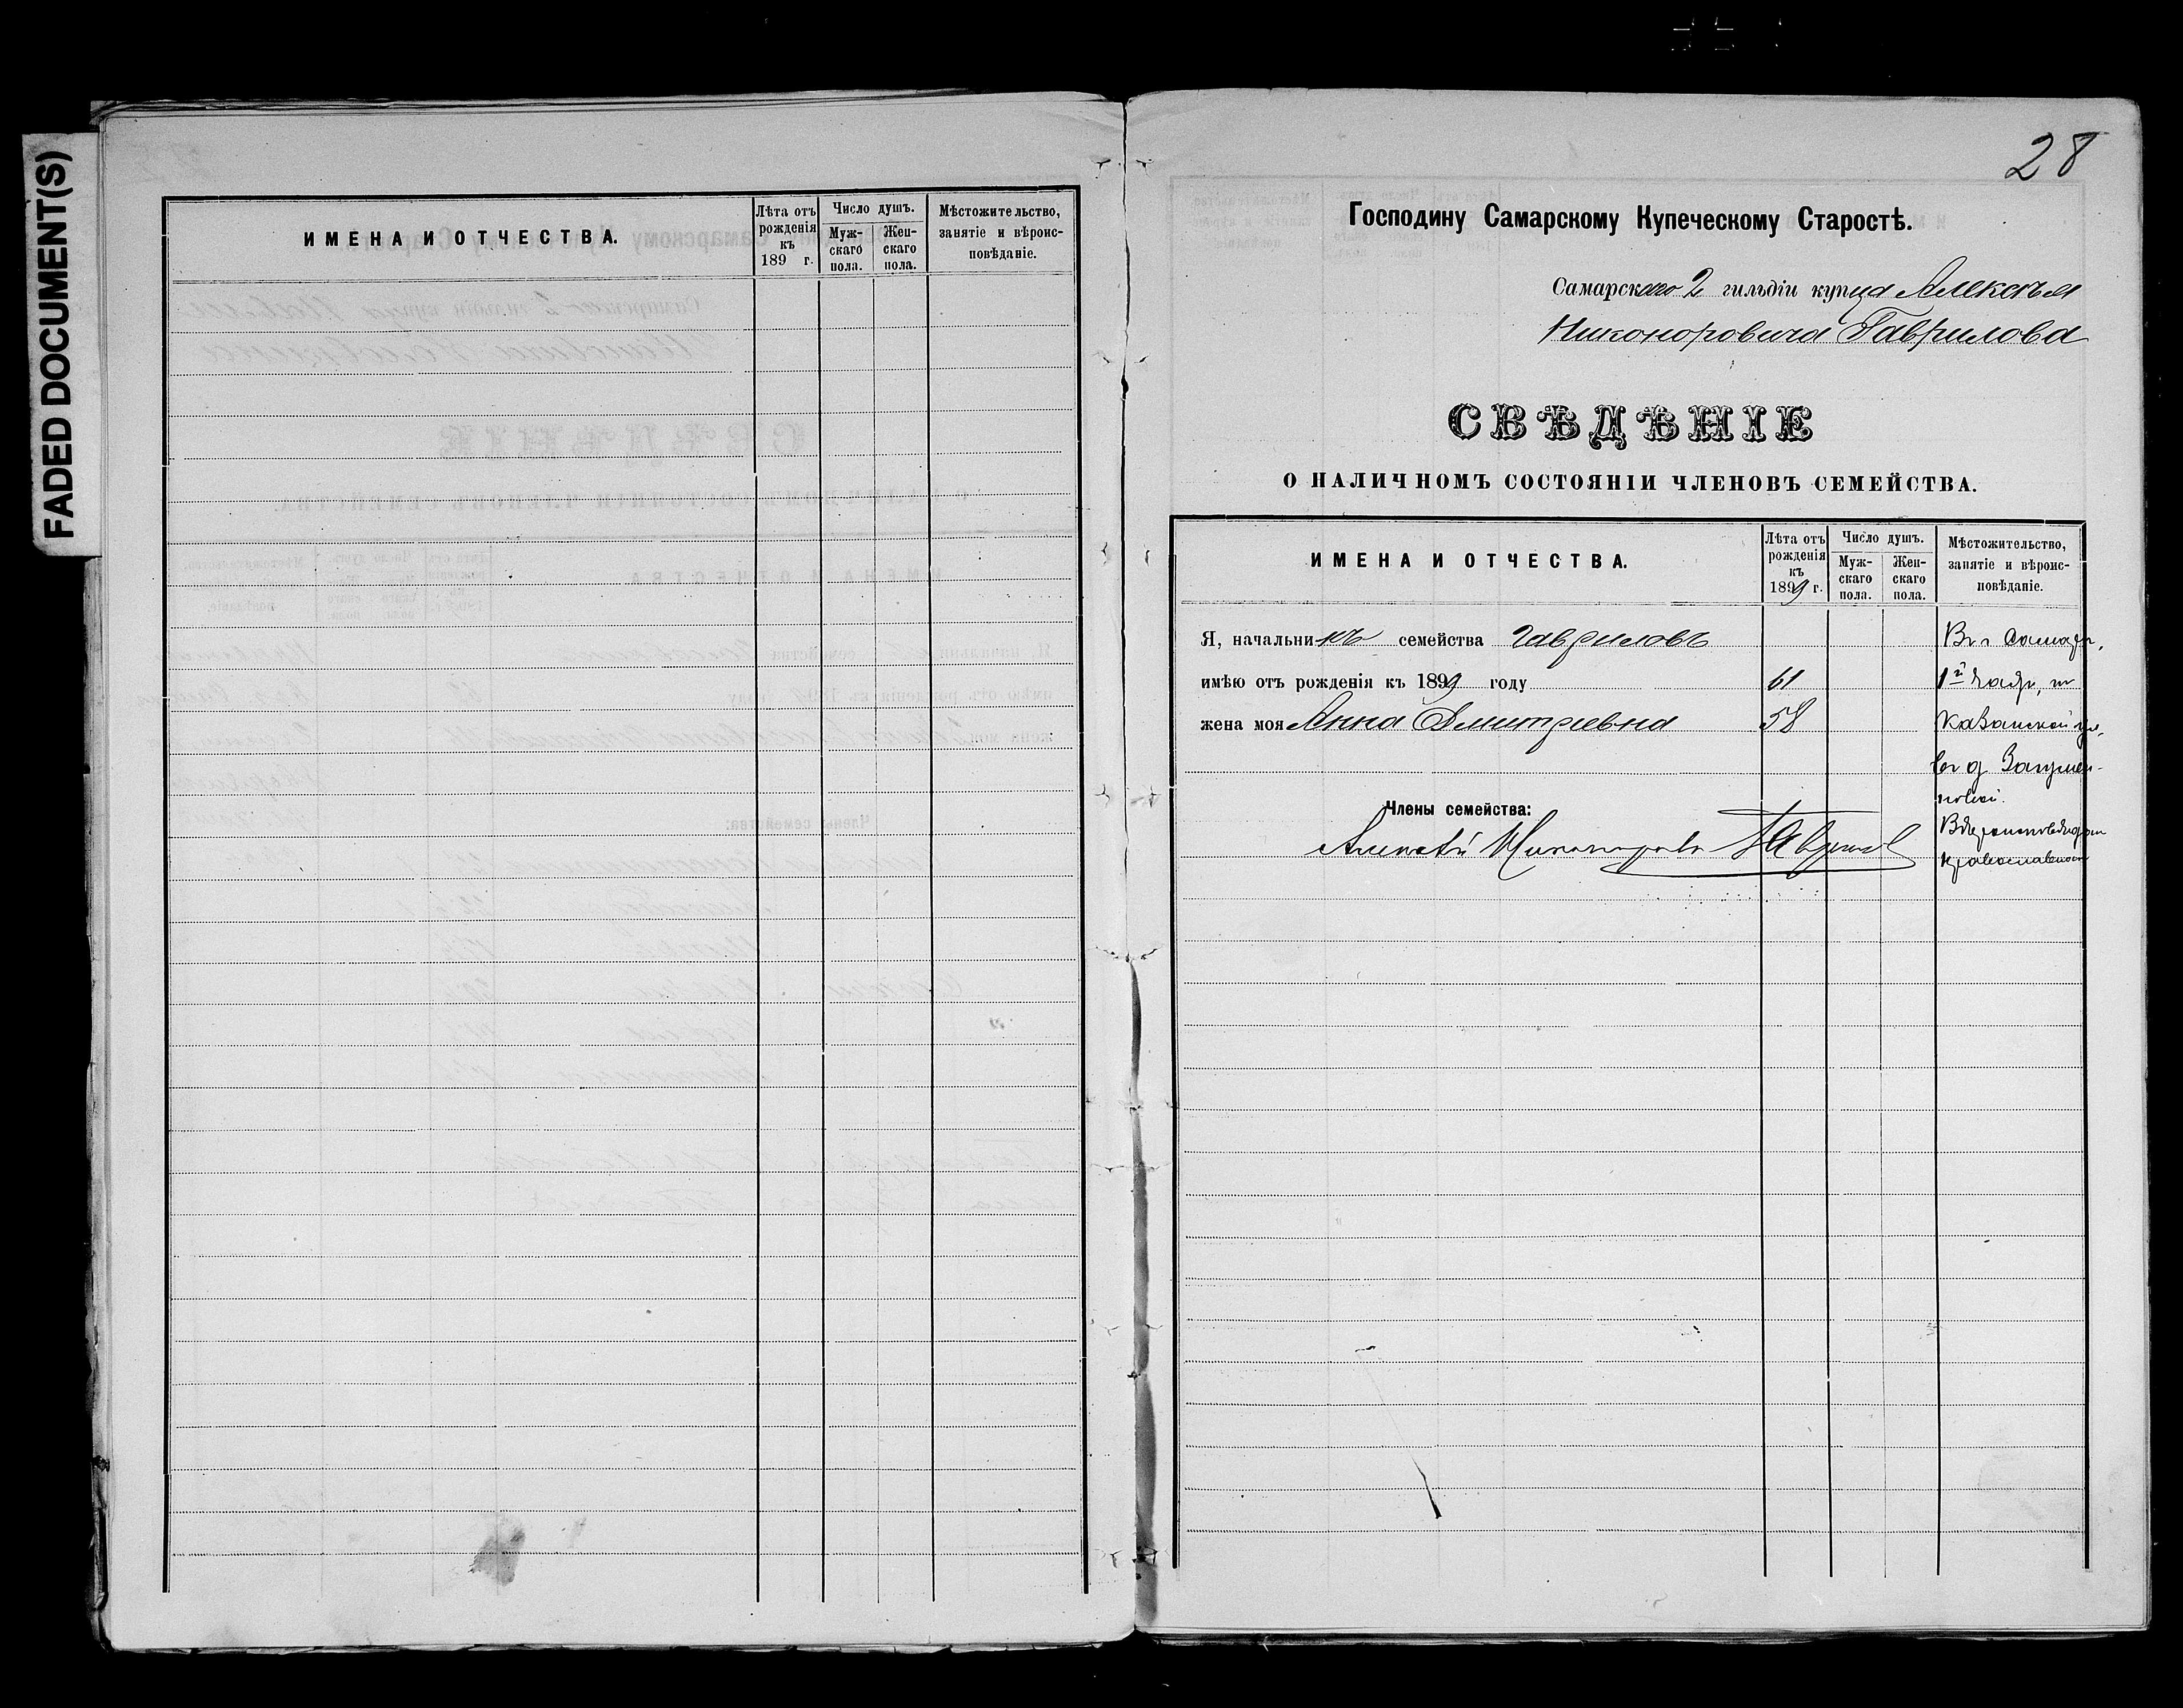 FADED DOCUMENT(S)
ИМЕНА И ОТЧЕСТВА.
Лѣта отъ рожденія къ 189 г.
Число душъ.
Мужскаго пола.
Женскаго пола.
Мѣстожительство, занятіе и вѣроисповѣданіе.
28
Господину Самарскому Купеческому Старостѣ.
Самарскаго 2 гильдіи купца Алексѣя
Никоноровича Гаврилова
СВѢДѢНІЕ
О НАЛИЧНОМЪ СОСТОЯНІИ ЧЛЕНОВЪ СЕМЕЙСТВА.
ИМЕНА И ОТЧЕСТВА.
Лѣта отъ рожденія къ 1899 г.
Число душъ.
Мужскаго пола.
Женскаго пола.
Мѣстожительство, занятіе и вѣроисповѣданіе.
Я, начальникъ семейства Гавриловъ
имѣю отъ рожденія къ 1899 году 61
жена моя Анна Дмитриевна 58
Члены семейства:
Алексѣй Никоноровъ Гавриловъ
Въ г Самарѣ,
1й части, на
Казанской ул,
въ д
Вѣроисповѣданія
православнаго